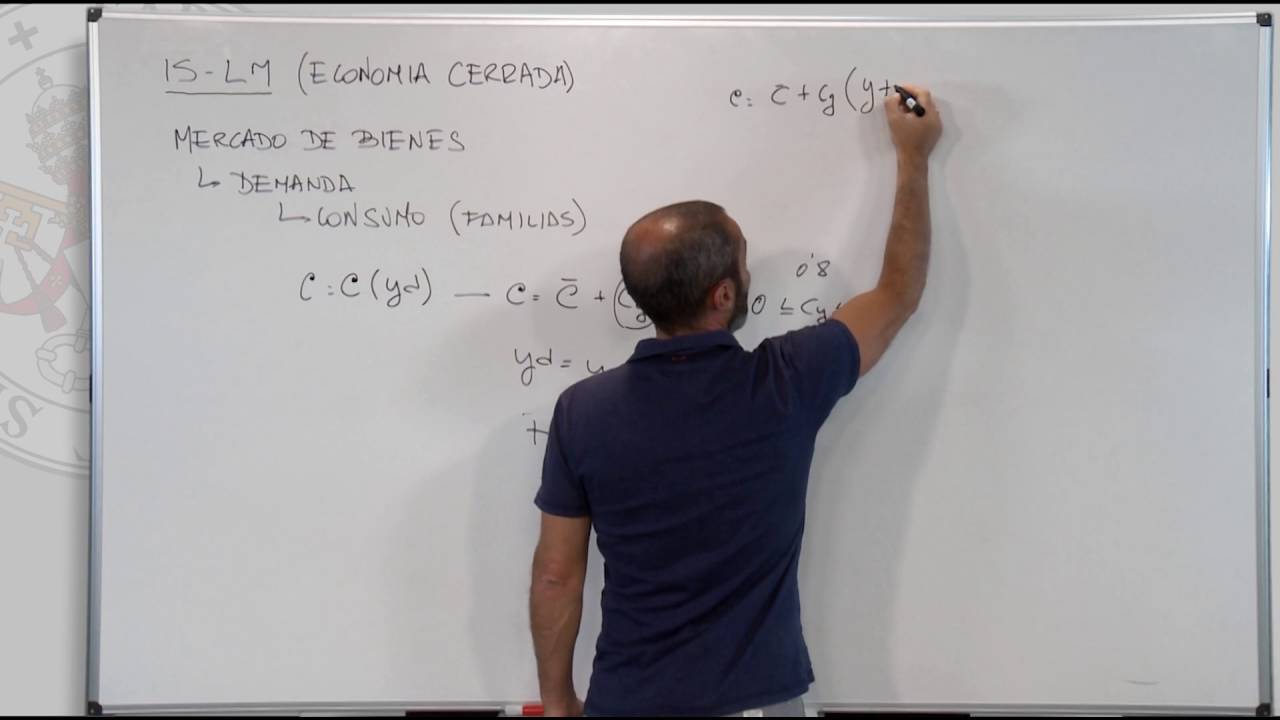 IS-LM (ECONOMIA CERRADA)
e: C̄ + Cy (y +
MERCADO DE BIENES
↳ DEMANDA
↳ CONSUMO (FAMILIAS)
0'8
C = C (yd) — C = C̄ + Cy 0 ≤ Cy
yd = y